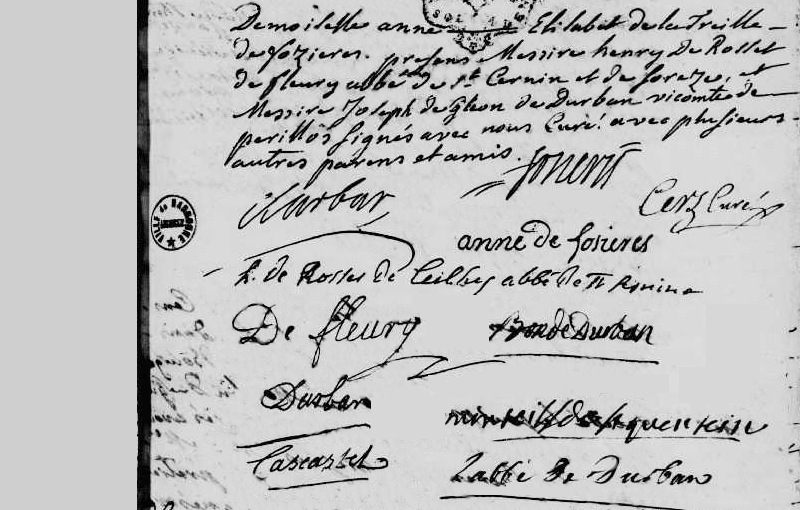 Demoiselle anne Elisabet de la Treille
de fozieres. presens Messire henry De Rosset
de fleury abbé de St. Cernin et de soreze, et
Messire Joseph de Gleon de Durban vicomte de
perillos signés avec nous Curé! avec plusieurs
autres parens et amis.
Durban
Curé
anne de fosieres
h. de Rosset de abbé de
De fleury
de Durban
Durban
Cascastel
L'abbé De Durban
VILLE de NARBONNE